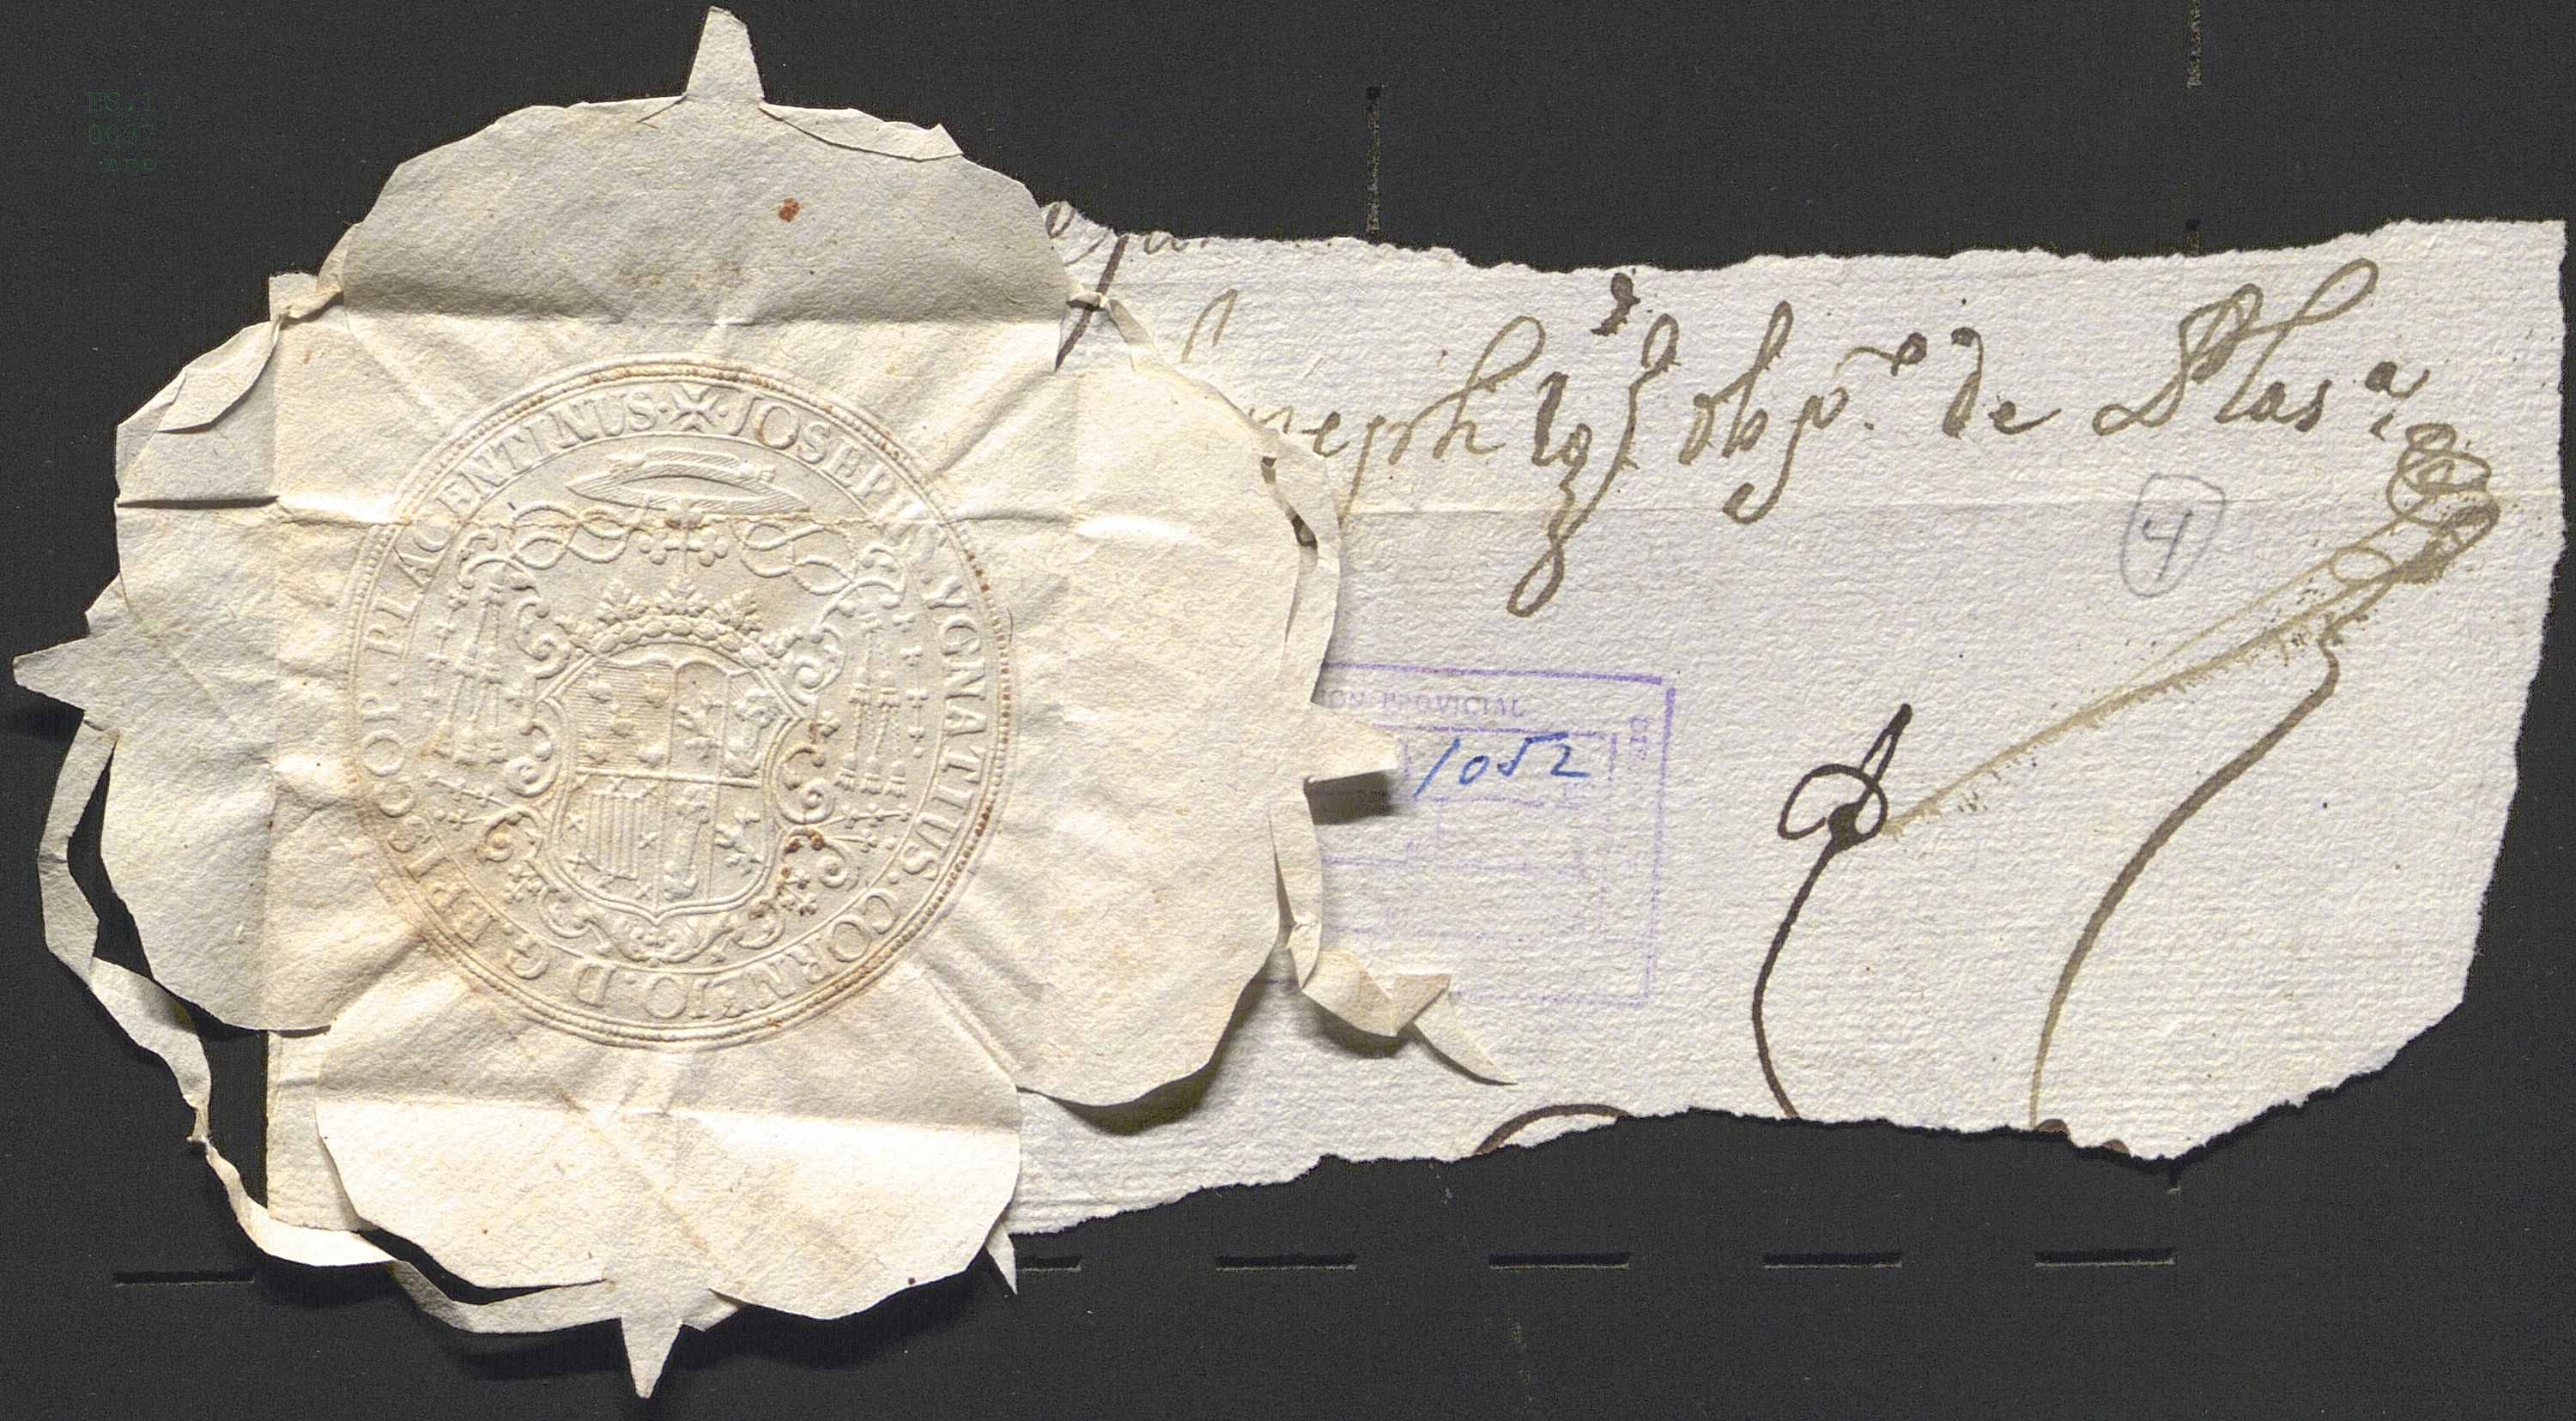 ES.1
✠ · JOSEPH · YGNATIUS · CORNEJO · D · G · EPISCOP · PLACENTINUS ·
Joseph Ygº obpº de Plasª
4
ION PROVICIAL
1052